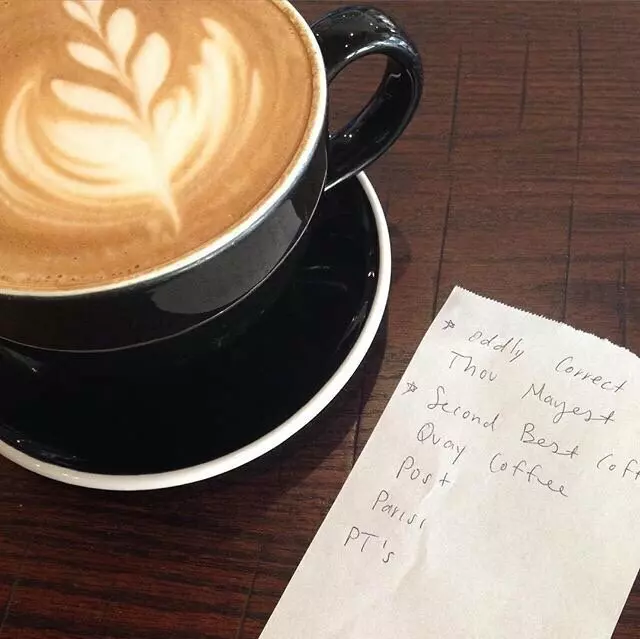 ☆ Oddly Correct
Thou Mayest
☆ Second Best Coff
Quay Coffee
Post
Parisi
PT's